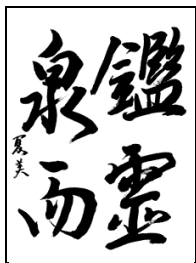 鑑靈
泉而
夏美